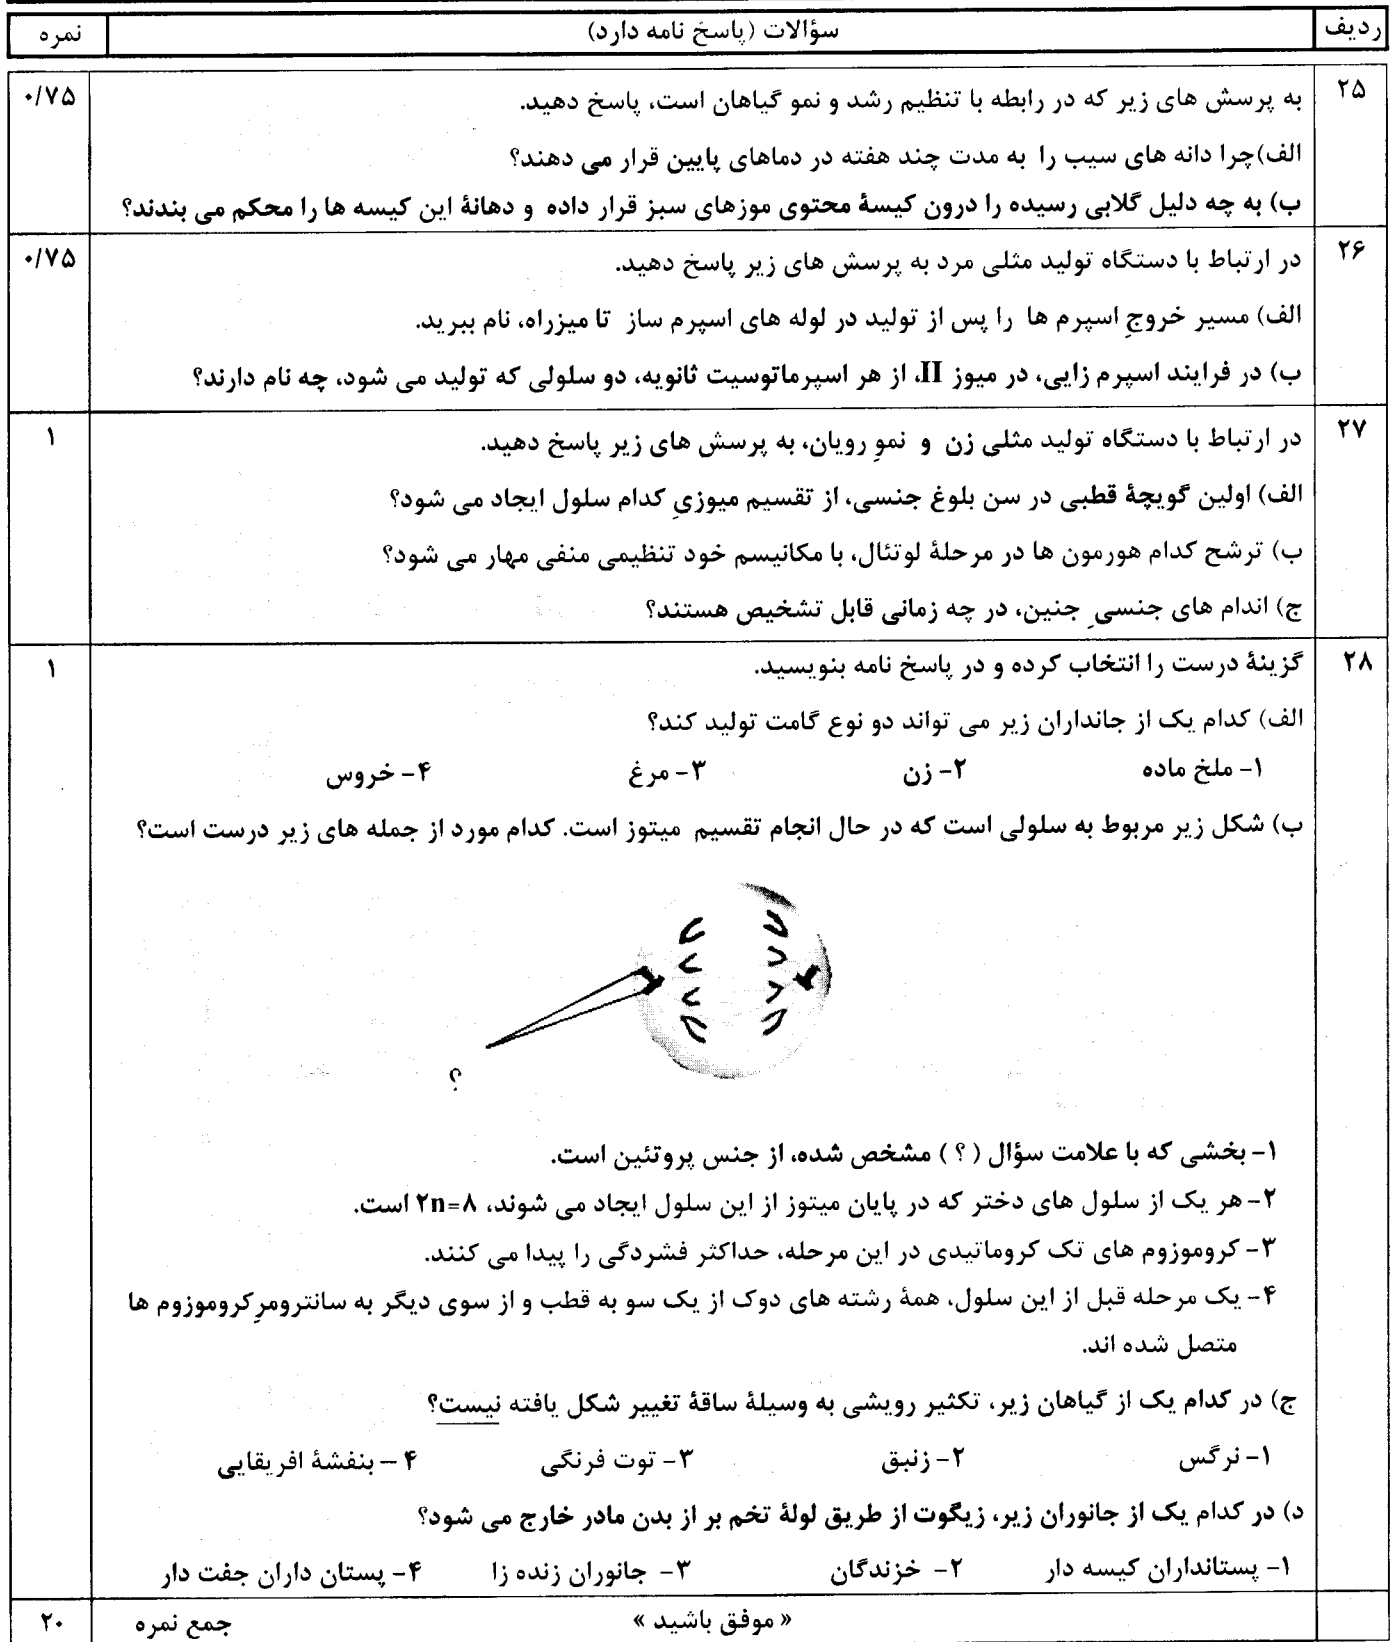 ردیف سؤالات (پاسخ نامه دارد) نمره
۲۵ به پرسش های زیر که در رابطه با تنظیم رشد و نمو گیاهان است، پاسخ دهید. ۰/۷۵
الف)چرا دانه های سیب را به مدت چند هفته در دماهای پایین قرار می دهند؟
ب) به چه دلیل گلابی رسیده را درون کیسهٔ محتوی موزهای سبز قرار داده و دهانهٔ این کیسه ها را محکم می بندند؟
۲۶ در ارتباط با دستگاه تولید مثلی مرد به پرسش های زیر پاسخ دهید. ۰/۷۵
الف) مسیر خروجِ اسپرم ها را پس از تولید در لوله های اسپرم ساز تا میزراه، نام ببرید.
ب) در فرایند اسپرم زایی، در میوز II، از هر اسپرماتوسیت ثانویه، دو سلولی که تولید می شود، چه نام دارند؟
۲۷ در ارتباط با دستگاه تولید مثلی زن و نموِ رویان، به پرسش های زیر پاسخ دهید. ۱
الف) اولین گویچهٔ قطبی در سن بلوغ جنسی، از تقسیم میوزیِ کدام سلول ایجاد می شود؟
ب) ترشح کدام هورمون ها در مرحلهٔ لوتئال، با مکانیسم خود تنظیمی منفی مهار می شود؟
ج) اندام های جنسیِ جنین، در چه زمانی قابل تشخیص هستند؟
۲۸ گزینهٔ درست را انتخاب کرده و در پاسخ نامه بنویسید. ۱
الف) کدام یک از جانداران زیر می تواند دو نوع گامت تولید کند؟
۱- ملخ ماده ۲- زن ۳- مرغ ۴- خروس
ب) شکل زیر مربوط به سلولی است که در حال انجام تقسیم میتوز است. کدام مورد از جمله های زیر درست است؟
؟
۱- بخشی که با علامت سؤال ( ؟ ) مشخص شده، از جنس پروتئین است.
۲- هر یک از سلول های دختر که در پایان میتوز از این سلول ایجاد می شوند، ۲n=۸ است.
۳- کروموزوم های تک کروماتیدی در این مرحله، حداکثر فشردگی را پیدا می کنند.
۴- یک مرحله قبل از این سلول، همهٔ رشته های دوک از یک سو به قطب و از سوی دیگر به سانترومرِکروموزوم ها
متصل شده اند.
ج) در کدام یک از گیاهان زیر، تکثیر رویشی به وسیلهٔ ساقهٔ تغییر شکل یافته نیست؟
۱- نرگس ۲- زنبق ۳- توت فرنگی ۴- بنفشهٔ افریقایی
د) در کدام یک از جانوران زیر، زیگوت از طریق لولهٔ تخم بر از بدن مادر خارج می شود؟
۱- پستانداران کیسه دار ۲- خزندگان ۳- جانوران زنده زا ۴- پستان داران جفت دار
« موفق باشید » جمع نمره ۲۰